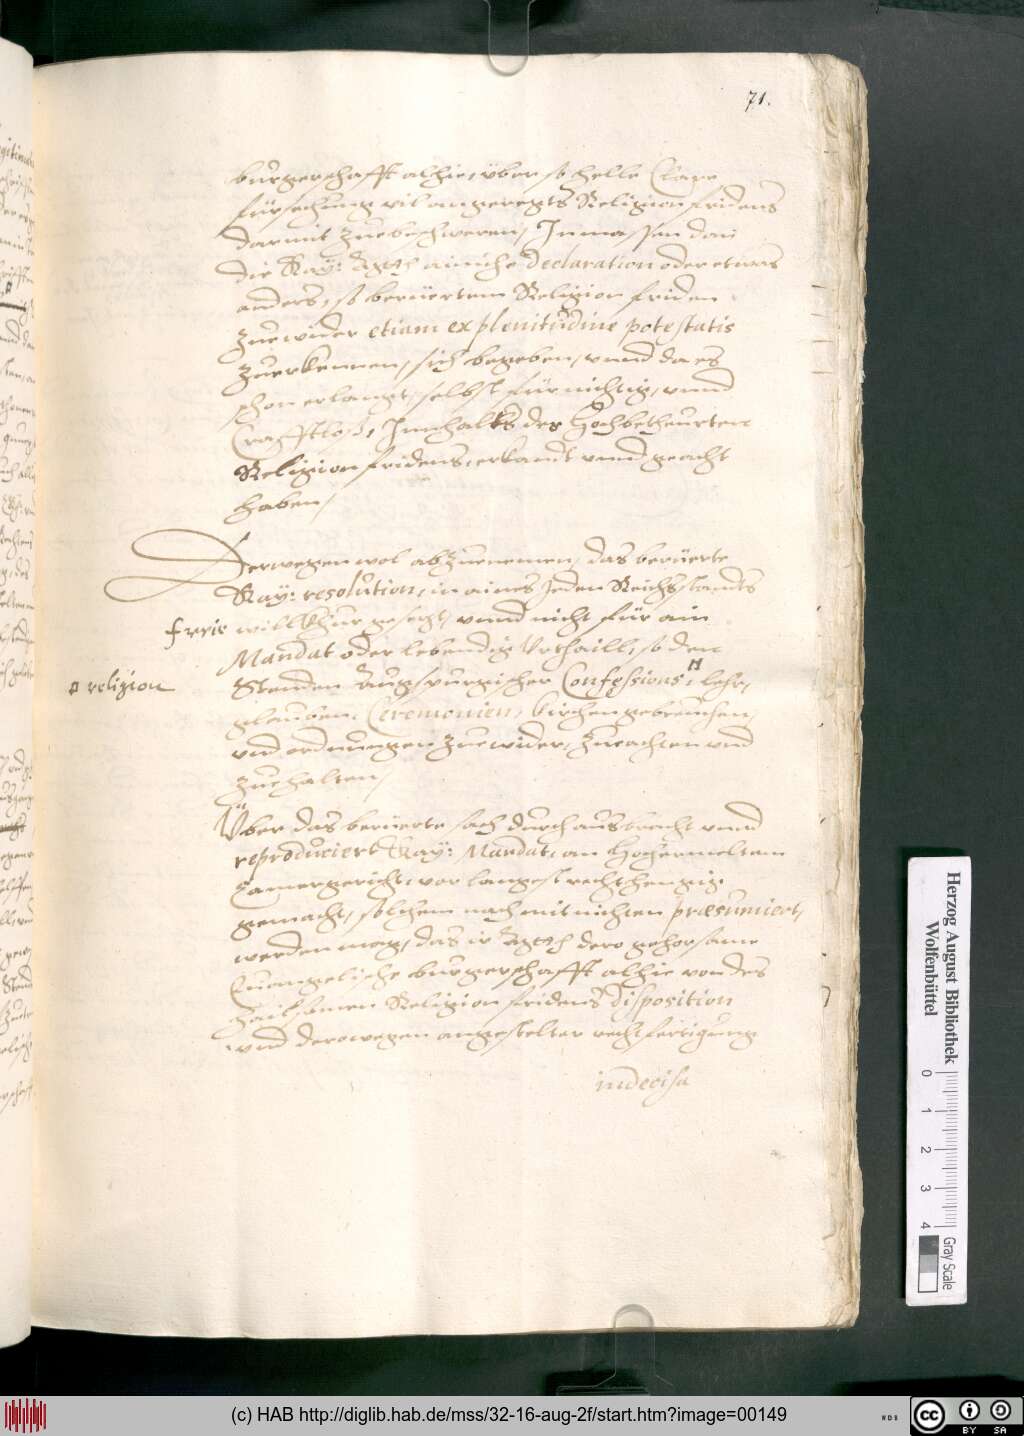 71.
burgerschafft alhie, über so helle Clare
fürsehung vil angeregts Religion fridens
darmit zue beschweren, Inmassen dan
die Kay: Mtt: ainiche Declaration oder etwas
anders, so berüertem Religion friden
zuewider etiam ex plenitudine potestatis
zuerkennen, sich begeben, vnnd da es
schon erlangt, selbst für nichtig, vnnd
Crafftloß, Innhalts des Hochbetheurten
Religion fridens, erkandt vnnd geacht
haben,
Derwegen wol abzuenemen, das berüerte
Kay: resolution, in aines Jeden Reichsstandts
freie willkhur gesetzt, vnnd nicht für ain
Mandat oder lebendig Vrthaill, so den
Stenden Augspurgischer Confessions, lehr,
religion
glauben, Ceremonien, kirchengebreuchen,
vnd ordnungen zuewider, zueachten vnd
zuehalten,
Über das berüerte sach durch ausbracht vnnd
reproduciert Kay: Mandat, an Hochermeltem
Camergericht, vor langest rechthengig
gemacht, solchem nach mit nichten præsumiert,
werden mag, das ir Mtt: dero gehorsame
Euangelische burgerschafft alhie von des
hailsamen Religion fridens disposition
vnd derowegen angestelter rechtfertigung
indecisa
Herzog August Bibliothek
Wolfenbüttel
0 1 2 3 4
Gray Scale
(c) HAB http://diglib.hab.de/mss/32-16-aug-2f/start.htm?image=00149
cc BY SA